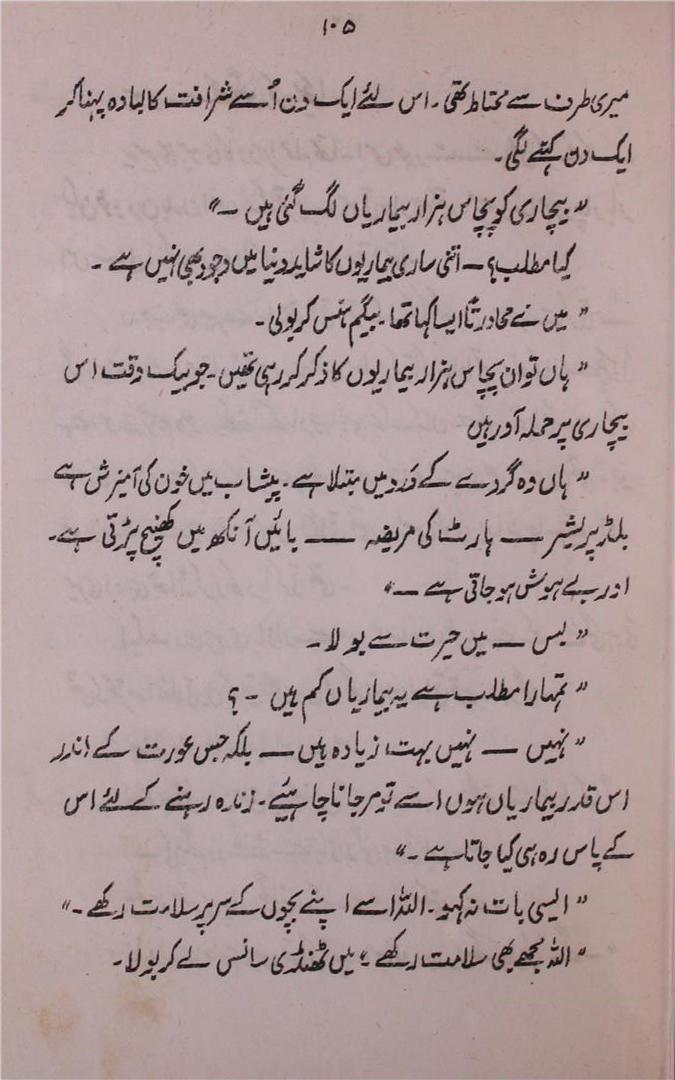 ۱۰۵
میری طرف سے محتاط تھی ۔ اس لئے ایک دن اُسے شرافت کا لبادہ پہنا کر
ایک دن کہنے لگی ۔
” بیچاری کو پچاس ہزار بیماریاں لگ گئی ہیں ۔“
کیا مطلب؟ ۔ اتنی ساری بیماریوں کا شاید دنیا میں وجود بھی نہیں ہے ۔
” میں نے محاورتاً ایسا کہا تھا ۔ بیگم ہنس کر بولی ۔
” ہاں تو ان پچاس ہزار بیماریوں کا ذکر کر رہی تھیں ۔ جو بیک وقت اس
بیچاری پر حملہ آور ہیں
” ہاں وہ گردے کے درد میں مبتلا ہے ۔ پیشاب میں خون کی آمیزش ہے
بلڈ پریشر — ہارٹ کی مریضہ — بائیں آنکھ میں کھنچ پڑتی ہے ۔
اور بے ہوش ہو جاتی ہے —“
” بس — میں حیرت سے بولا ۔
” تمہارا مطلب ہے یہ بیماریاں کم ہیں ۔ ؟
” نہیں — نہیں بہت زیادہ ہیں — بلکہ جس عورت کے اندر
اس قدر بیماریاں ہوں اسے تو مر جانا چاہیئے ۔ زندہ رہنے کے لئے اس
کے پاس رہ ہی کیا جاتا ہے ۔“
” ایسی بات نہ کہو ۔ اللہ اسے اپنے بچوں کے سر پر سلامت رکھے ۔“
” اللہ مجھے بھی سلامت رکھے “ میں ٹھنڈی سانس لے کر بولا ۔